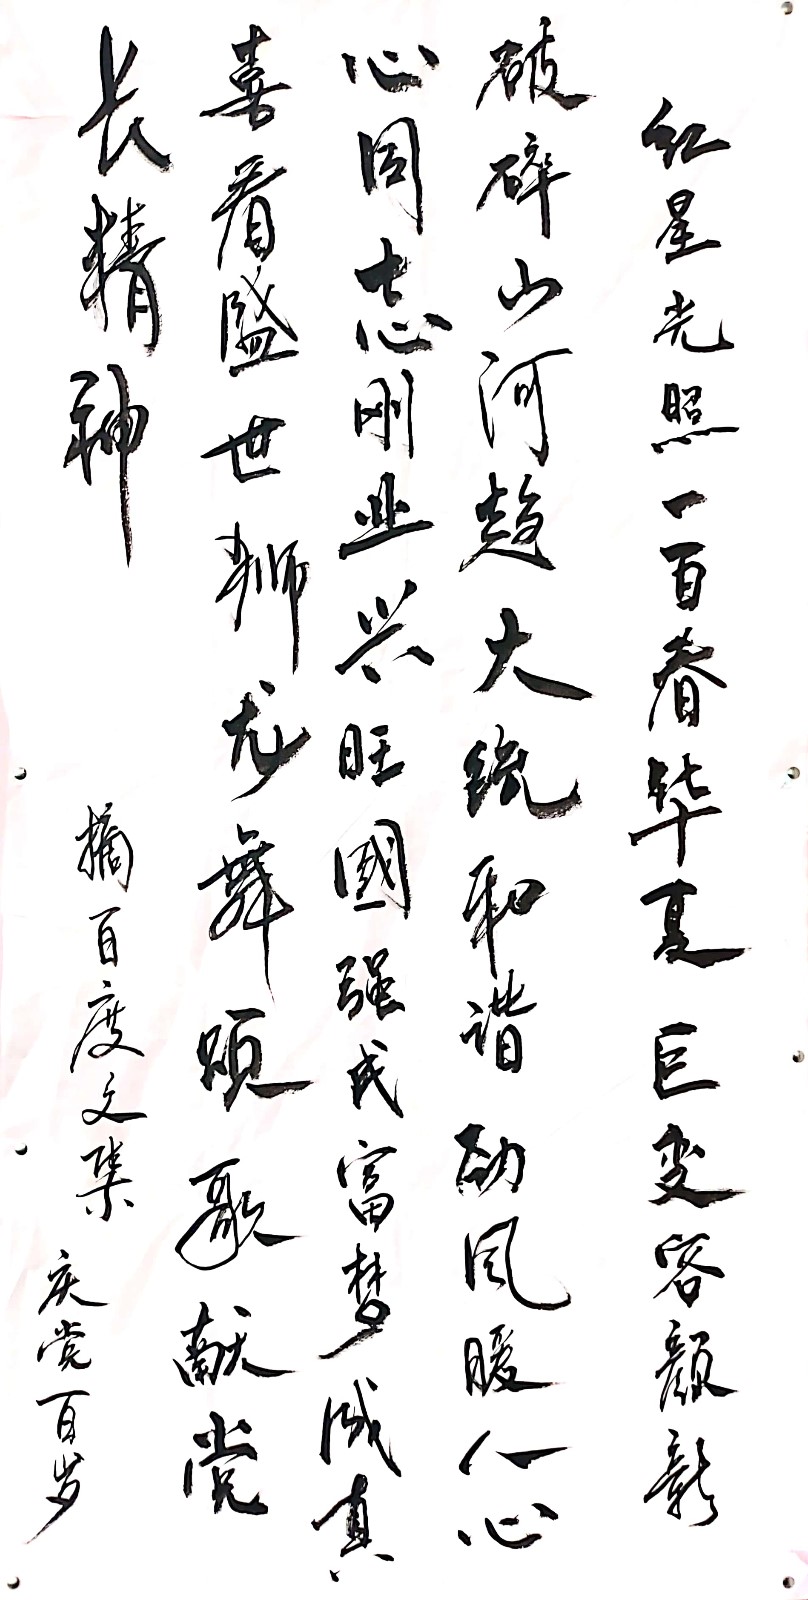 红星光照一百春华夏巨变容颜新
破碎山河趋大统和谐劲风暖人心
心同志刚业兴旺國强民富梦成真
喜看盛世狮龙舞颂歌献党
长精神
摘百度文集
庆党百岁